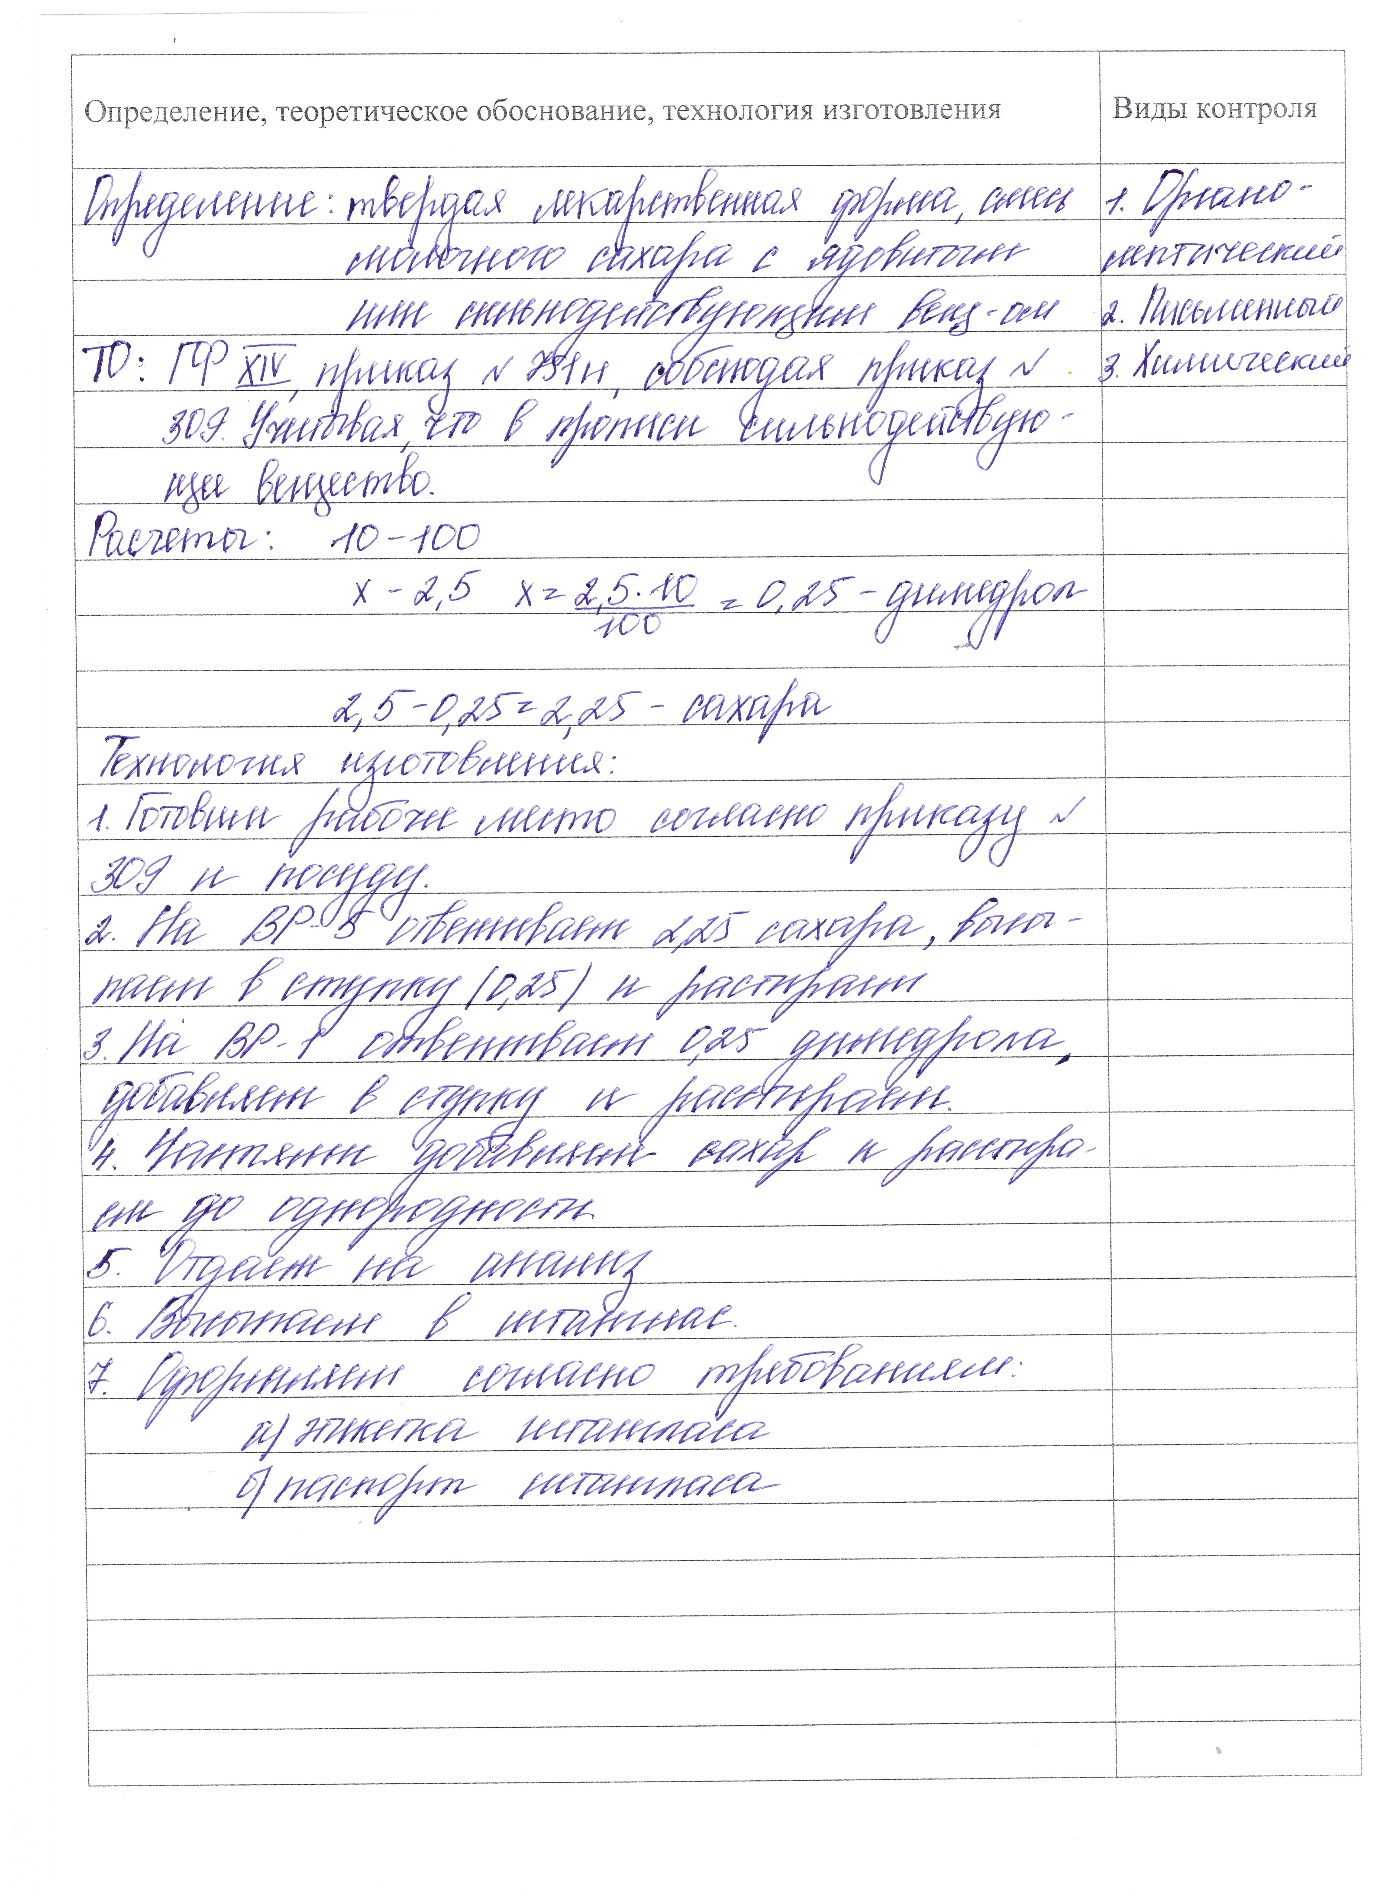 Определение, теоретическое обоснование, технология изготовления
Виды контроля
Определение: твердая лекарственная форма, смесь
молочного сахара с ядовитым
или сильнодействующим вещ-ом
ТО: ГФ XIV, приказ № 751н, соблюдая приказ №
309. Учитывая, что в прописи сильнодействую-
щее вещество.
Расчеты: 10 - 100
х - 2,5 х = 2,5 · 10 / 100 = 0,25 - димедрол
2,5 - 0,25 = 2,25 - сахара
Технология изготовления:
1. Готовим рабочее место согласно приказу №
309 и посуду.
2. На ВР-5 отвешиваем 2,25 сахара, высы-
паем в ступку (0,25) и растираем
3. На ВР-1 отвешиваем 0,25 димедрола,
добавляем в ступку и растираем.
4. Частями добавляем сахар и растира-
ем до однородности
5. Отдаем на анализ
6. Высыпаем в штанглас.
7. Оформляем согласно требованиям:
а) этикетка штангласа
б) паспорт штангласа
1. Органо-
лептический
2. Письменный
3. Химический